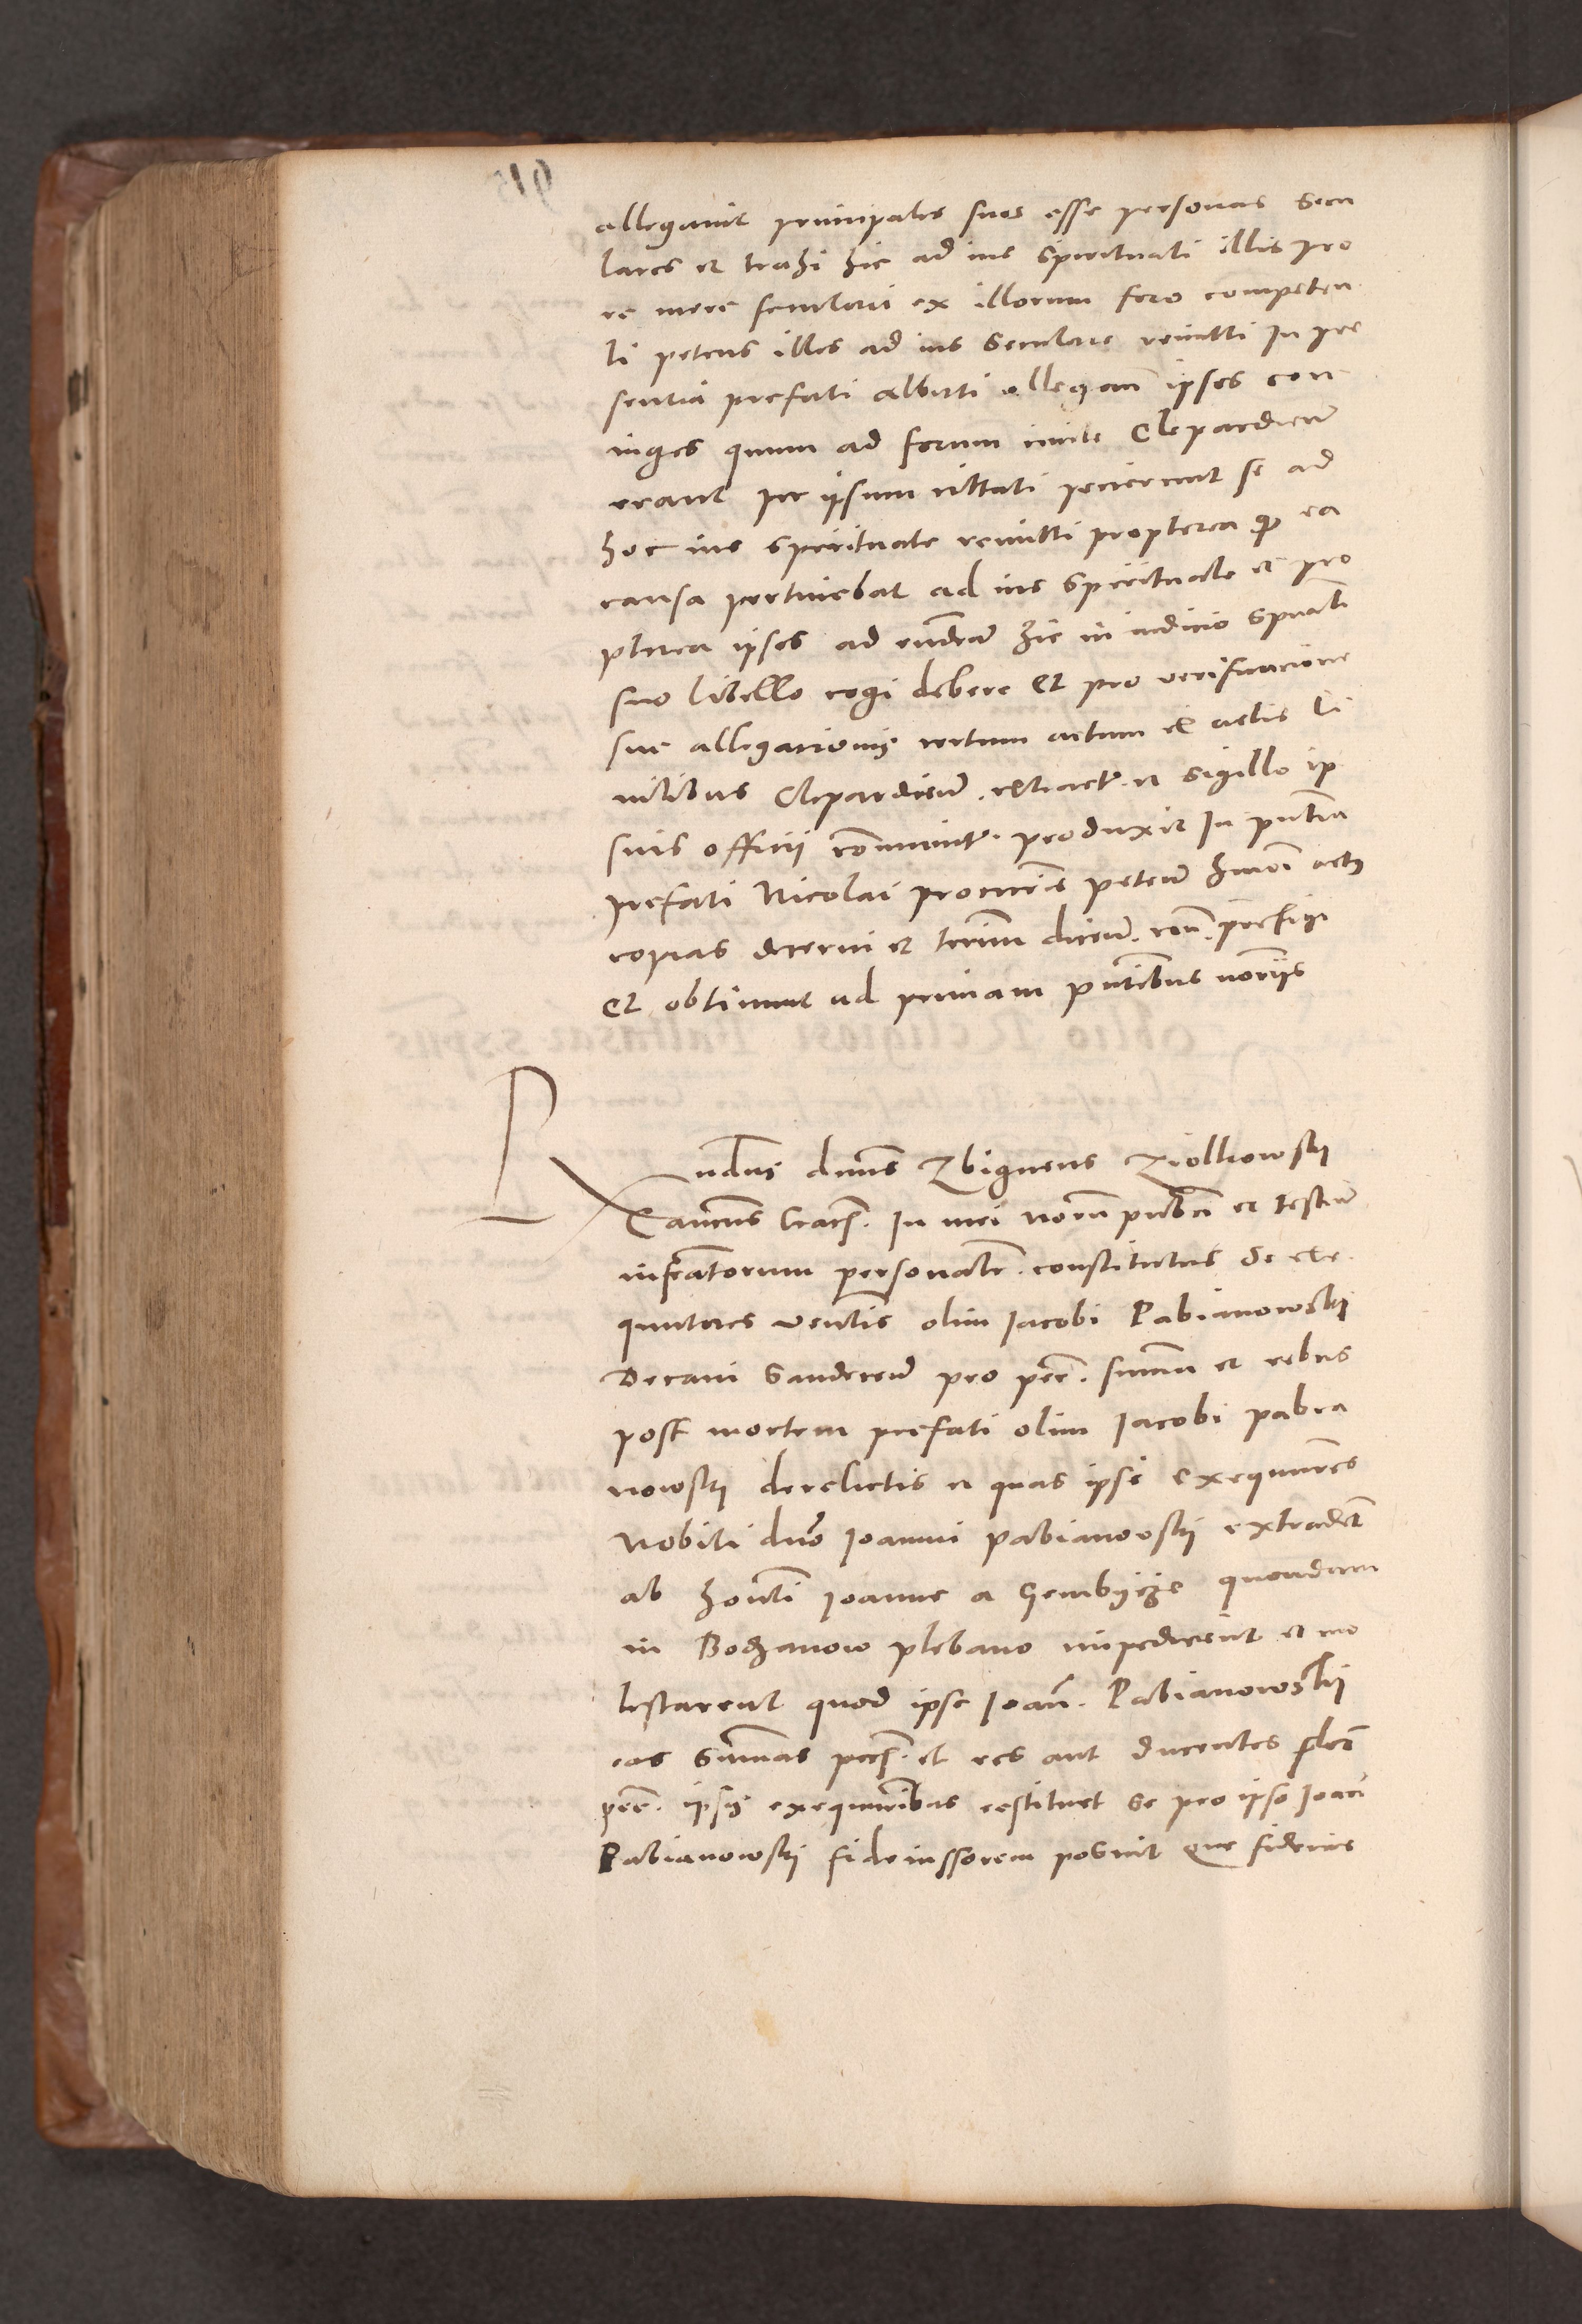 allegavit principales suos esse personas secu
lares et trahi hic ad ius spirituali illis pro
re mere seculari ex illorum foro competen
ti petens illos ad ius seculare remitti In pre
sentia prefati Alberti allegan͂ ipsos con
iuges quum ad forum civile Clepardien͂
erant per ipsum citati petierunt se ad
hoc ius spirituale remitti propterea qp ea
causa pertinebat ad ius spirituale et pro
pterea ipsos ad eund͂em hic in iudicio sp͂uali
suo libello cogi debere Et pro verificacione
sue allegacionis certum actum ex actis Ci
vilibus Clepardien͂ extract. et sigillo ip
suis officii com͂unit. produxit In pn͂tia
prefati Nicolai procur͂is peten͂ hm͂oi act9
copias decerni et term͂ dicen͂. con͂. prefigi
Et obtinuit ad primam pn͂tibus nor͂iis
R
Rn͂dus dn͂us Zbigneus Ziolkowski
Can͂cus Crac͂. In mei nor͂ii pub͂ci et testiu͂
infra͂torum personal͂r. constitutus Se exe
quutores ven͂lis olim Jacobi Pabianowskij
Decani Sandecen͂ pro pec͂. sum͂a et rebus
post mortem prefati olim Jacobi pabia
nowskij derelictis et quas ipsi exequut͂ores
Nobili dn͂o Joanni pabianowskij extrader͂t
ab hon͂li Joanne a Gembycze quondam
in Bodzanow plebano impedirent et mo
lestarent quod ipse Joan͂. Pabianowskij
eas Sum͂as pec͂. et res aut ducentos flor͂.
pec͂. ipsis exequut͂ribus restituet se pro ipso Joan͂
Pabianowskij fideiussorem posuit Que fideius